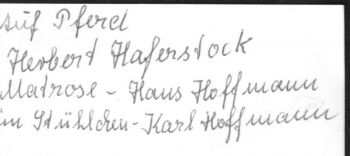 Auf Pferd
Herbert Haferstock
Matrose - Hans Hoffmann
im Stühlchen - Karl Hoffmann